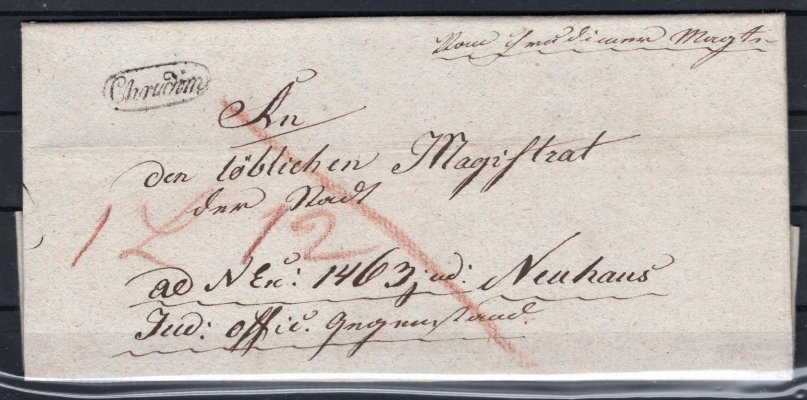 Vom Chrudimer Magt.
Chrudim
An
den löblichen Magistrat
der Stadt
1 L 12
ad NEx: 1463 jud: Neuhaus
Jud: offic. Gegenstand.